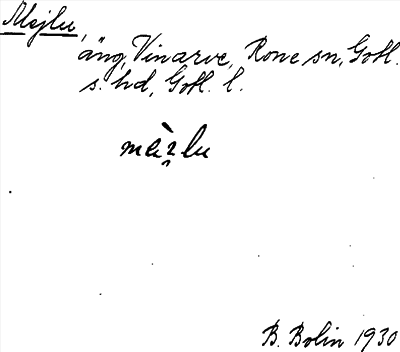 Mejlu,
äng, Vinarve, Rone sn, Gotl.
s. hd, Gotl. l.
mèi̯lu
B. Bolin 1930